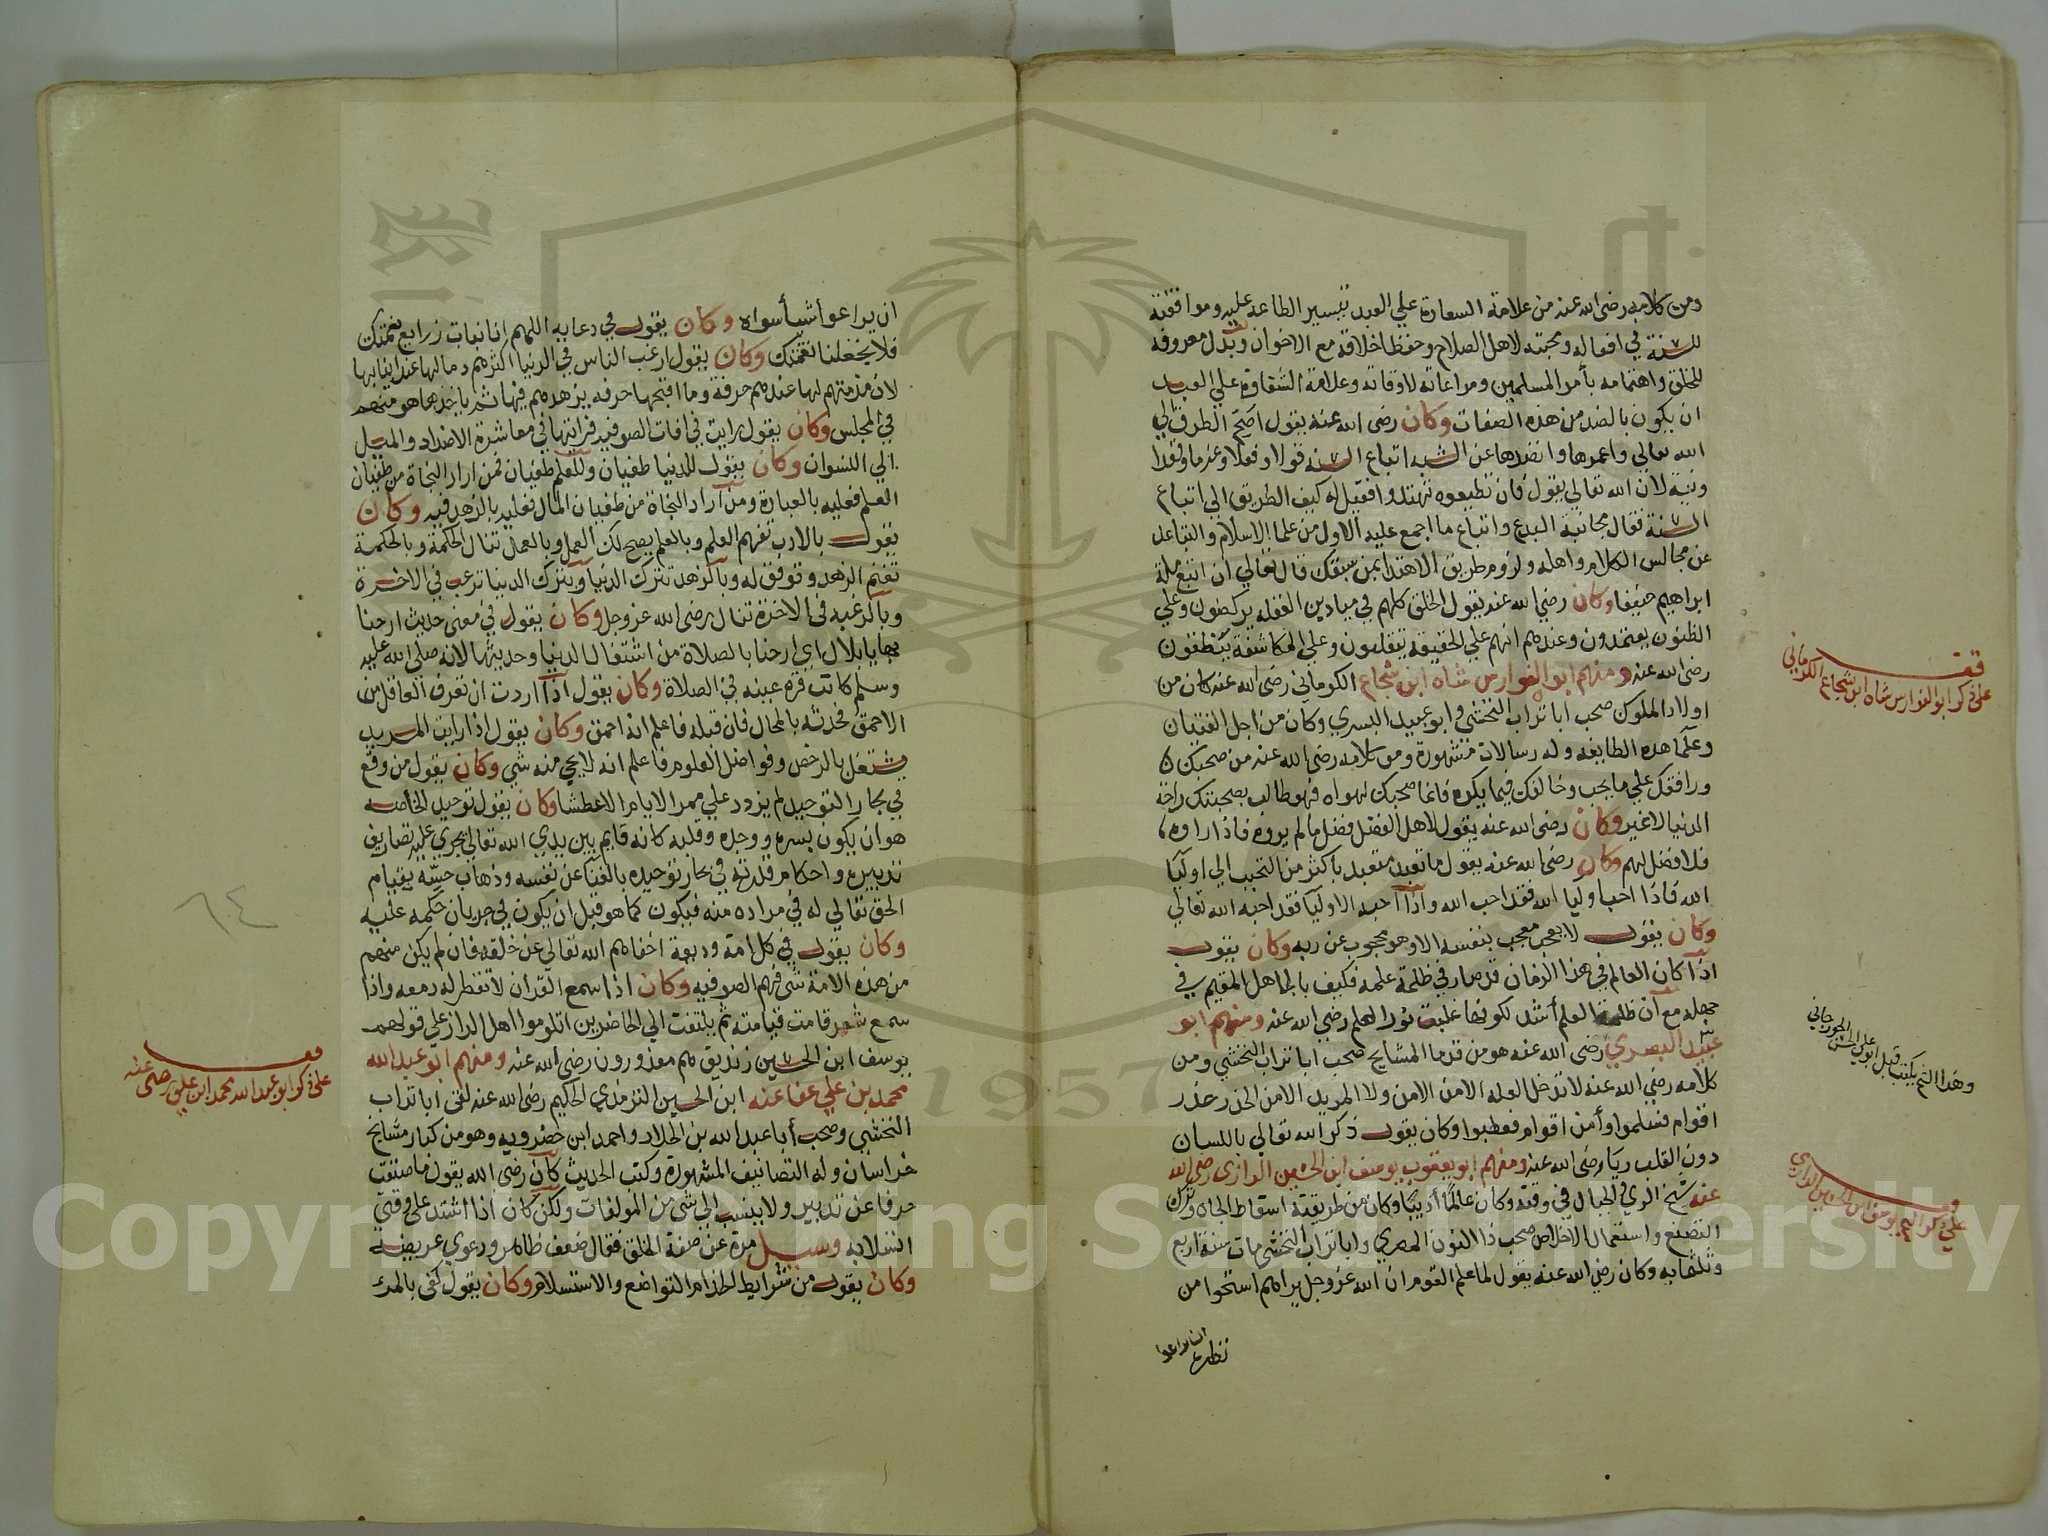 ومن كلامه رضي الله عنه من علامة السعادة علي العبد تيسير الطاعة عليه وموافقته
للسنة في افعاله ومحبته لاهل الصلاح وحفظ اخلاقه مع الاخوان وبذل معروفه
للخلق واهتمامه بأمر المسلمين ومراعاته لاوقاته وعلامة الشقاوة علي العبد
ان يكون بالضد من هذه الصفات وكان رضى الله عنه يقول اصح الطرق الي
الله تعالى واعمرها وابعدها عن الشبه اتباع السنة قولا وفعلا وعزما وعقدا
ونية لان الله تعالي يقول فان تطيعوه تهتدوا فقيل له كيف الطريق الي اتباع
السنة فقال مجانبة البدع واتباع ما اجمع عليه الاول من علما الاسلام والتباعد
عن مجالس الكلام واهله ولزوم طريق الاقتدا بمن سبقك قال تعالي ان اتبع ملة
ابراهيم حنيفا وكان رضي الله عنه يقول الخلق كلهم في ميادين الغفلة يركضون وعلي
الظنون يعتمدون وعندهم انهم علي الحقيقة يتقلبون وعلي المكاشفة ينطقون
رضي الله عنه ومنهم ابو الفوارس شاه ابن شجاع الكرماني رضي الله عنه كان من
اولاد الملوك صحب ابا تراب النخشي وابو عبيد البسري وكان من اجل الفتيان
وعلما هذه الطايفه وله رسالات مشهورة ومن كلامه رضى الله عنه من صحبك
ورافقك علي ما يحب وخالفك فيما يكره فانما صحبك لهواه فهو طالب بصحبتك راحة
الدنيا لاغير وكان رضى الله عنه يقول لاهل الفضل فضل ما لم يروه فاذا راوه
فلا فضل لهم وكان رضى الله عنه يقول ما تعبد متعبد باكثر من التحبب الي اوليا
الله فاذا احب اوليا الله فقد احب الله واذا احبه الاوليا فقد احبه الله تعالي
وكان يقول لا يعجب معجب بنفسه الا وهو محجوب عن ربه وكان يقول
اذا كان العالم في هذا الزمان قد صار في ظلمة علمه فكيف بالجاهل المقيم في
جهله مع ان ظلمة العلم أشد لكونها غلبت نور العلم رضي الله عنه ومنهم ابو
عبيد البصري رضى الله عنه هو من قدما المشايخ صحب ابا تراب النخشي ومن
كلامه رضي الله عنه لا تدخل العلة الا من الامن ولا المريد الا من الحذر حذر
اقوام فسلموا وأمن اقوام فعطبوا وكان يقول ذكر الله تعالي باللسان
دون القلب ريا رضى الله عنه ومنهم ابو يعقوب يوسف ابن الحسين الرازي رضى الله
عنه شيخ الري في الجبال في وقته وكان عالما أديبا وكان من طريقته اسقاط الجاه وترك
التصنع واستعمال الاخلاص صحب ذا النون المصري وابا تراب النخشي مات سنة اربع
وثلثمايه وكان رضي الله عنه يقول لما علم القوم ان الله عز وجل يراهم استحوا من
ان يراعوا
نظره
قف
على ذكر ابو الفوارس شاه ابن شجاع الكرماني
وهذا الشيخ يكتب قبل ابو علي الحسن الجورجاني
قف
على ذكر الشيخ يوسف ابن الحسين الرازي
ان يراعوا أشيأ سواه وكان يقول في دعايه اللهم انا نبات زرايع نعمتك
فلا تجعلنا نقمتك وكان يقول ارغب الناس في الدنيا اكثرهم ذما لها عند ابنايها
لان مذمتهم لها عندهم حرفة وما اقبحها حرفه يزهدهم فيها ثم ياخذها هو منهم
في المجلس وكان يقول رايت في افات الصوفية فرايتها في معاشرة الاضداد والميل
الي النسوان وكان يقول للدنيا طغيان وللعلم طغيان فمن اراد النجاة من طغيان
العلم فعليه بالعبادة ومن أراد النجاة من طغيان المال فعليه بالزهد فيه وكان
يقول بالادب تفهم العلم وبالعلم يصح لك العمل وبالعمل تنال الحكمة وبالحكمة
تفهم الزهد وتوفق له وبالزهد تترك الدنيا وبترك الدنيا ترغب في الاخرة
وبالرغبه في الاخرة تنال رضى الله عز وجل وكان يقول في معنى حديث ارحنا
بها يا بلال اي ارحنا بالصلاة من اشتغال الدنيا وحديثها لانه صلي الله عليه
وسلم كانت قرة عينه في الصلاة وكان يقول اذا اردت ان تعرف العاقل من
الاحمق فحدثه بالمحال فان قبله فاعلم انه احمق وكان يقول اذا رايت المريد
يشتغل بالرخص وفواضل العلوم فاعلم انه لا يجي منه شي وكان يقول من وقع
في بحار التوحيد لم يزدد علي ممر الايام الا عطشا وكان يقول توحيد الخاصه
هو ان يكون بسره ووجده وقلبه كانه قايم بين يدي الله تعالى تجري عليه تصاريف
تدبيره واحكام قدرته في بحار توحيده بالفنا عن نفسه وذهاب حسه بقيام
الحق تعالي له في مراده منه فيكون كما هو قبل ان يكون في جريان حكمه عليه
وكان يقول في كل امة وديعة اخفاهم الله تعالي عن خلقه فان لم يكن منهم
من هذه الامة شي فهم الصوفيه وكان اذا سمع القرأن لا تقطر له دمعه واذا
سمع شعر قامت قيامته ثم يلتفت الي الحاضرين اتلوموا اهل الراز علي قولهم
يوسف ابن الحسين زنديق هم معذورون رضي الله عنه ومنهم ابو عبد الله
محمد بن علي عفا عنه ابن الحسين الترمذي الحكيم رضي الله عنه لقى ابا تراب
النخشي وصحب أبا عبد الله بن الجلاد واحمد ابن خضرويه وهو من كبار مشايخ
خراسان وله التصانيف المشهورة وكتب الحديث كان رضى الله يقول ما صنفت
حرفا عن تدبير ولا ينسب الي شي من المؤلفات ولكن كان اذا اشتد علي وقتي
انسلا به وسيل مرة عن صفة الخلق فقال ضعف ظاهر ودعوي عريضه
وكان يقول من شرايط الخدام التواضع والاستسلام وكان يقول كفى بالمرء
قف
على ذكر ابو عبد الله محمد ابن علي رضى عنه
٦٤
Copyright © King Saud University
1957